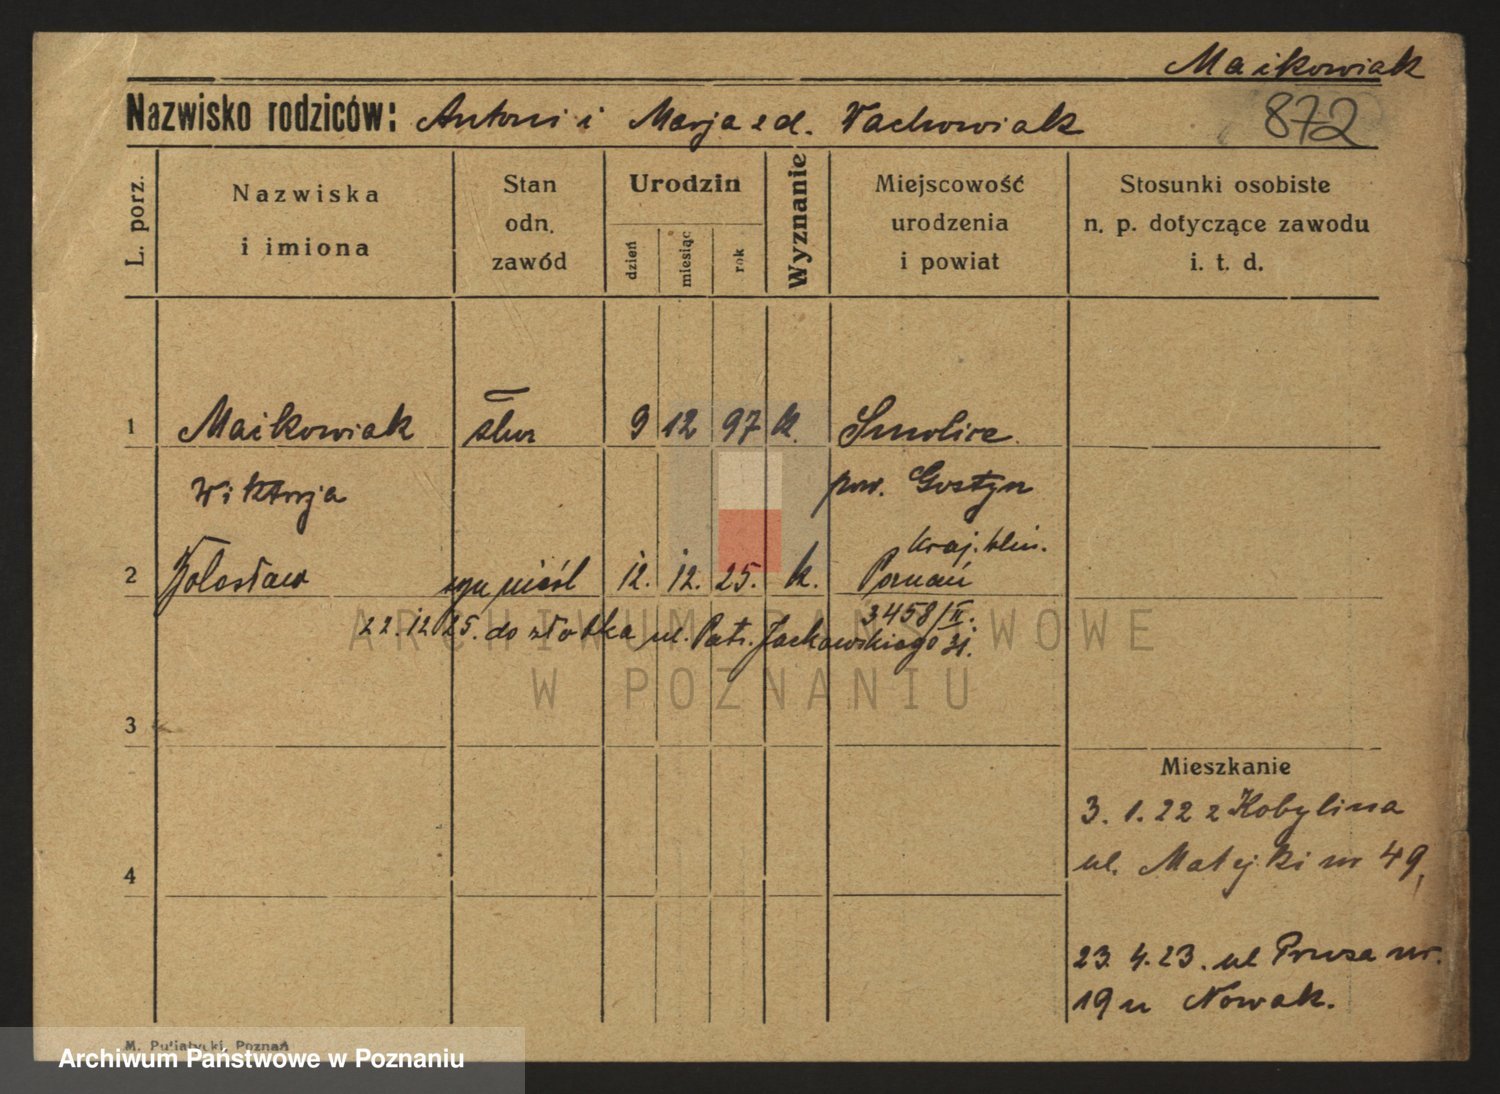 Maikowiak
Nazwisko rodziców: Antoni i Marja z d. Wachowiak
872
L. porz.
Nazwiska
i imiona
Stan
odn.
zawód
Urodzin
dzień
miesiąc
rok
Wyznanie
Miejscowość
urodzenia
i powiat
Stosunki osobiste
n. p. dotyczące zawodu
i. t. d.
1 Maikowiak służ 9 12 97 k. Smolice
Wiktorja pow. Gostyn
Kraj. klin.
2 Bolesław syn nieśl 12. 12. 25. k. Poznań
3458/II.
22.12.25. do żłobka ul. Patr. Jackowskiego 31.
3
Mieszkanie
3. 1. 22 z Kobylina
ul. Matejki nr 49,
4
23. 4. 23. ul Prusa nr.
19 u Nowak.
M. Putiatycki, Poznań
ARCHIWUM PAŃSTWOWE
W POZNANIU
Archiwum Państwowe w Poznaniu